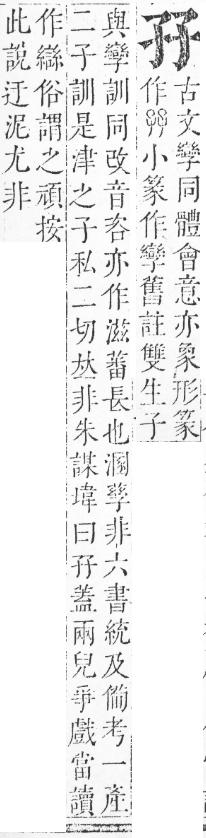 孖
古文孿同體會意亦象形篆
作小篆作孿舊註雙生子
與孿訓同改音咨亦作滋蕃長也溷孳非六書統及備考一產
二子訓是津之子私二切𡘋非朱謀㙔曰孖蓋兩兒爭戲當讀
作俗謂之頑按
此說迂泥尤非